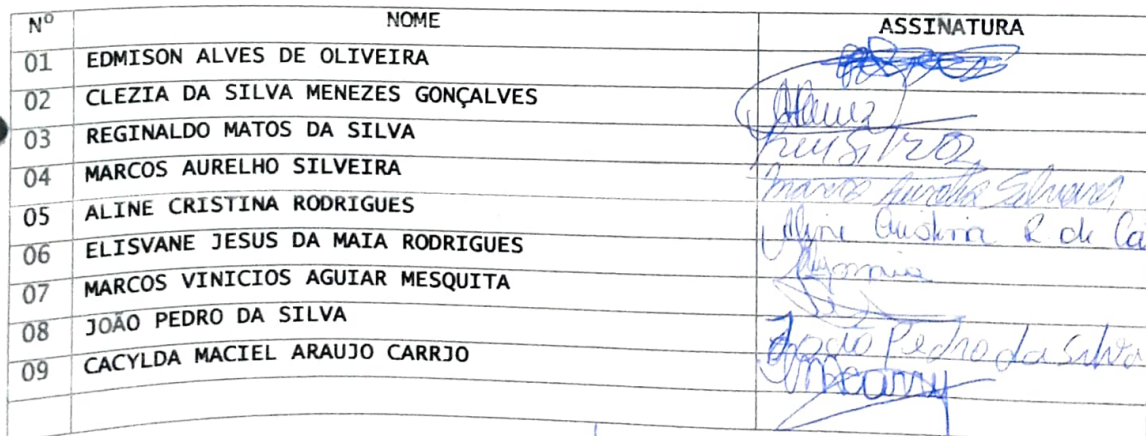 Nº NOME ASSINATURA
01 EDMISON ALVES DE OLIVEIRA
02 CLEZIA DA SILVA MENEZES GONÇALVES
03 REGINALDO MATOS DA SILVA
04 MARCOS AURELHO SILVEIRA Marcos Aurelho Silveira
05 ALINE CRISTINA RODRIGUES Aline Cristina R de Ca
06 ELISVANE JESUS DA MAIA RODRIGUES
07 MARCOS VINICIOS AGUIAR MESQUITA
08 JOÃO PEDRO DA SILVA João Pedro da Silva
09 CACYLDA MACIEL ARAUJO CARRJO